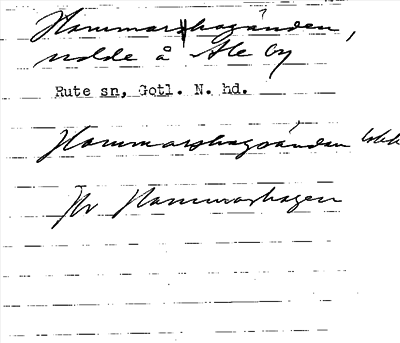 Hammarshagänden,
udde å Ale Ey
Rute sn, Gotl. N. hd.
Hammarshagsändan
Hr Hammarshagen